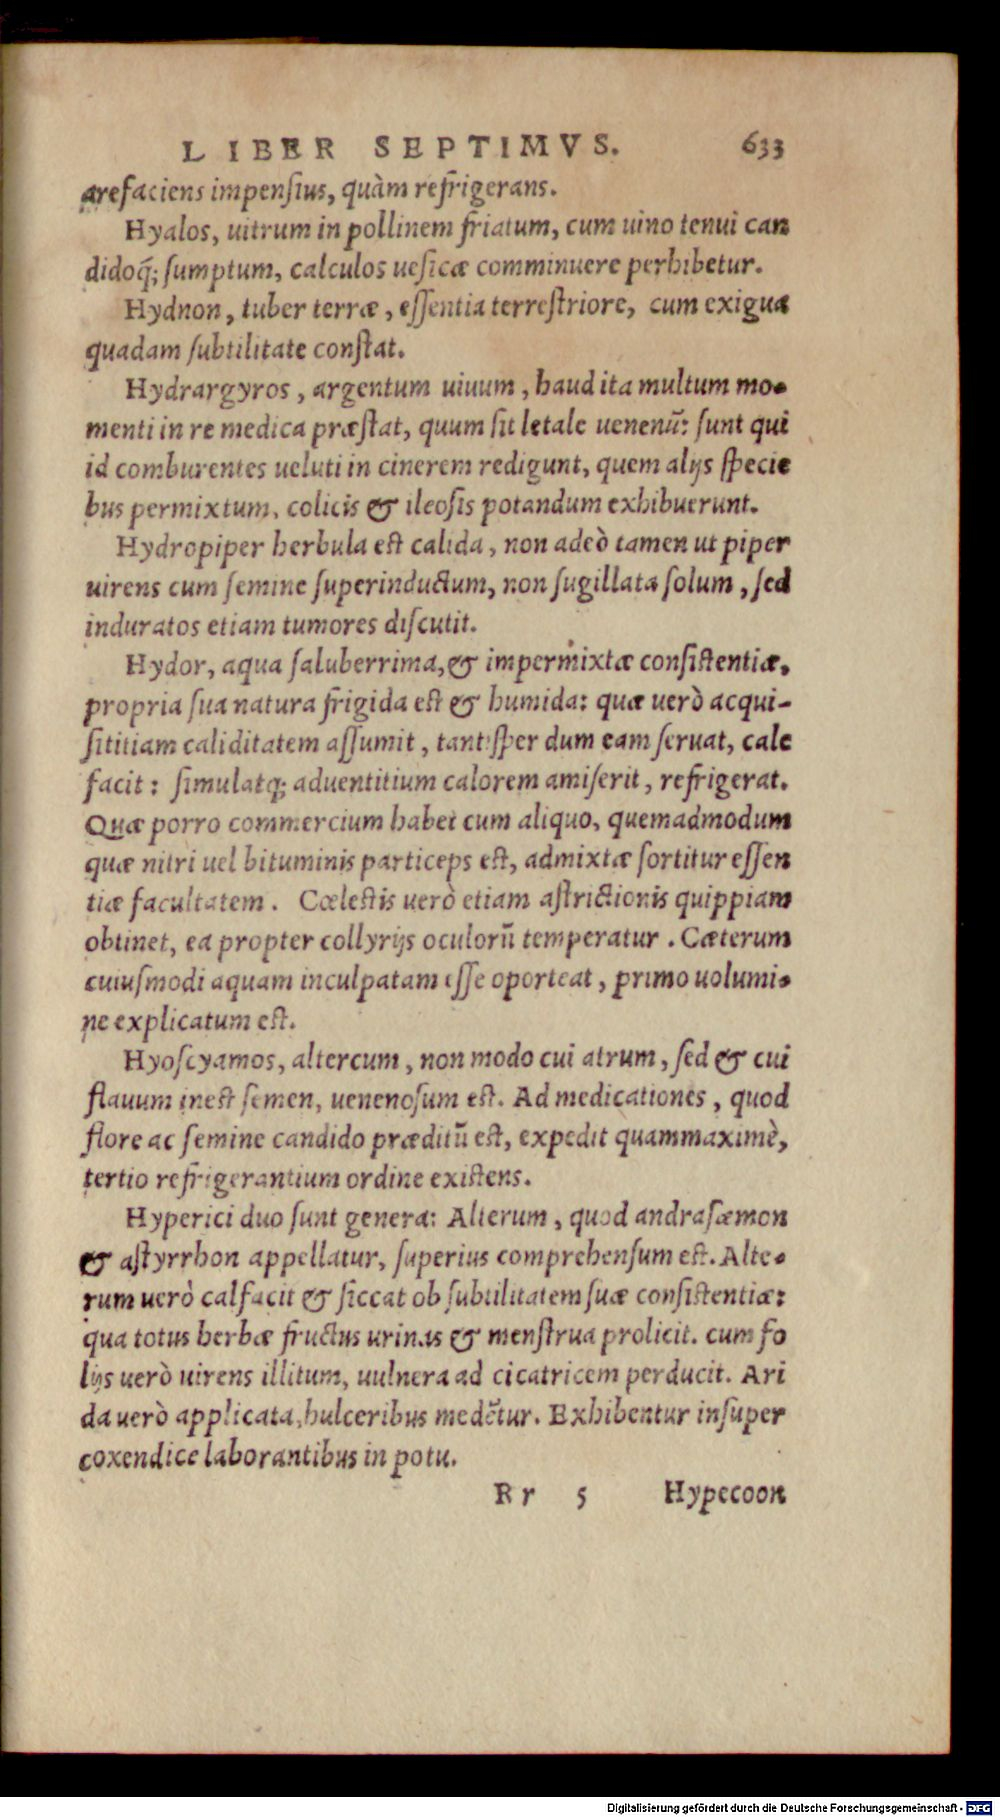 LIBER SEPTIMVS. 633
arefaciens impensius, quàm refrigerans.
Hyalos, uitrum in pollinem friatum, cum uino tenui can
didoq́; sumptum, calculos uesicæ comminuere perhibetur.
Hydnon, tuber terræ, essentia terrestriore, cum exigua
quadam subtilitate constat.
Hydrargyros, argentum uiuum, haud ita multum mo-
menti in re medica præstat, quum sit letale uenenū: sunt qui
id comburentes ueluti in cinerem redigunt, quem alijs specie
bus permixtum, colicis & ileosis potandum exhibuerunt.
Hydropiper herbula est calida, non adeò tamen ut piper
uirens cum semine superinductum, non sugillata solum, sed
induratos etiam tumores discutit.
Hydor, aqua saluberrima, & impermixtæ consistentiæ,
propria sua natura frigida est & humida: quæ uerò acqui-
sititiam caliditatem assumit, tantisper dum eam seruat, cale
facit: simulatq; aduentitium calorem amiserit, refrigerat.
Quæ porro commercium habet cum aliquo, quemadmodum
quæ nitri uel bituminis particeps est, admixtæ sortitur essen
tiæ facultatem. Cœlestis uerò etiam astrictionis quippiam
obtinet, ea propter collyrijs oculorū temperatur. Cæterum
cuiusmodi aquam inculpatam esse oporteat, primo uolumi-
ne explicatum est.
Hyoscyamos, altercum, non modo cui atrum, sed & cui
flauum inest semen, uenenosum est. Ad medicationes, quod
flore ac semine candido præditū est, expedit quammaximè,
tertio refrigerantium ordine existens.
Hyperici duo sunt genera: Alterum, quod andrasæmon
& astyrrhon appellatur, superius comprehensum est. Alte-
rum uerò calfacit & siccat ob subtilitatem suæ consistentiæ:
qua totus herbæ fructus urinas & menstrua prolicit. cum fo
lijs uerò uirens illitum, uulnera ad cicatricem perducit. Ari
da uerò applicata, hulceribus medētur. Exhibentur insuper
coxendice laborantibus in potu.
Rr 5 Hypecoon
Digitalisierung gefördert durch die Deutsche Forschungsgemeinschaft - DFG